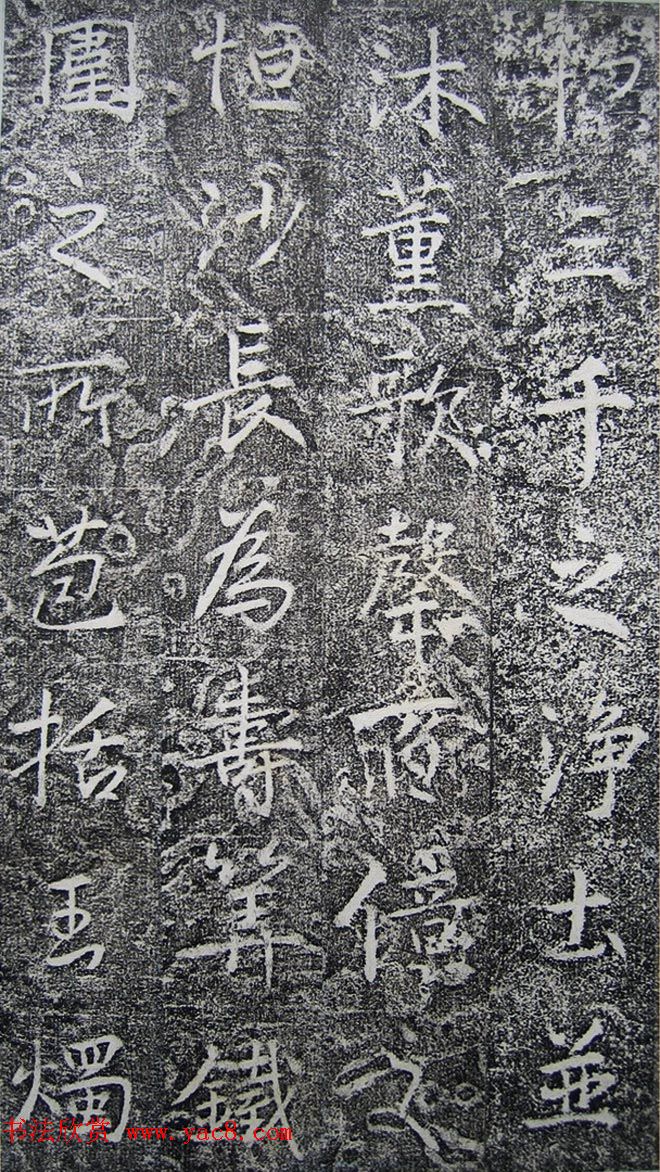 三千之净土並
沐薰歌罄百億之
恒沙長為壽筭鐵
圍之所苞括王燭
书法欣赏 www.yac8.com